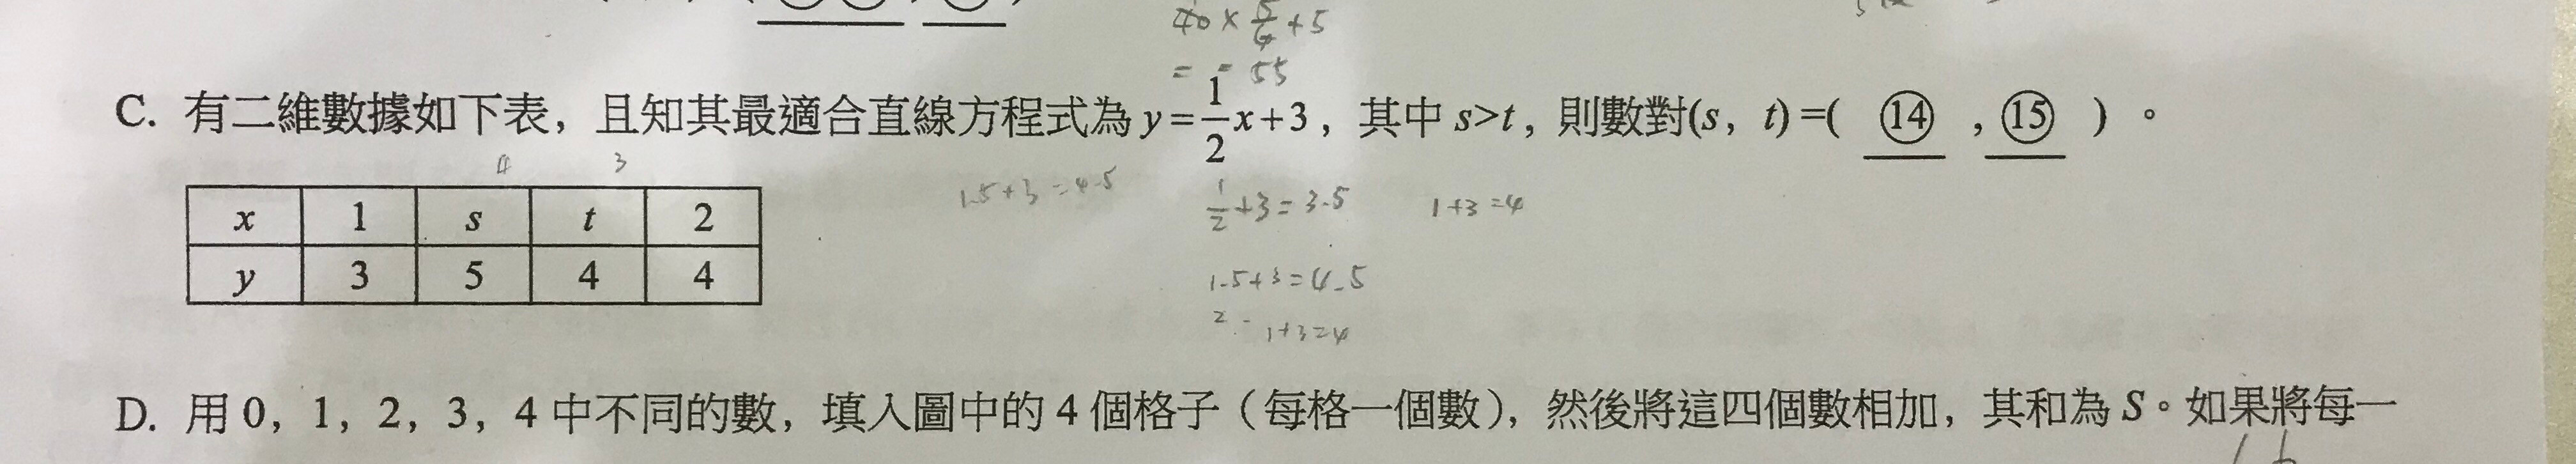 40 × 5/4 + 5
= = 55
C. 有二維數據如下表，且知其最適合直線方程式為 y=1/2x+3，其中 s>t，則數對(s，t)=( ⑭ ,⑮ )。
4 3
x 1 s t 2
y 3 5 4 4
1.5+3=4.5
1/2+3=3.5
1+3=4
1.5+3=4.5
2 - 1+3=4
D. 用 0，1，2，3，4 中不同的數，填入圖中的 4 個格子（每格一個數），然後將這四個數相加，其和為 S。如果將每一